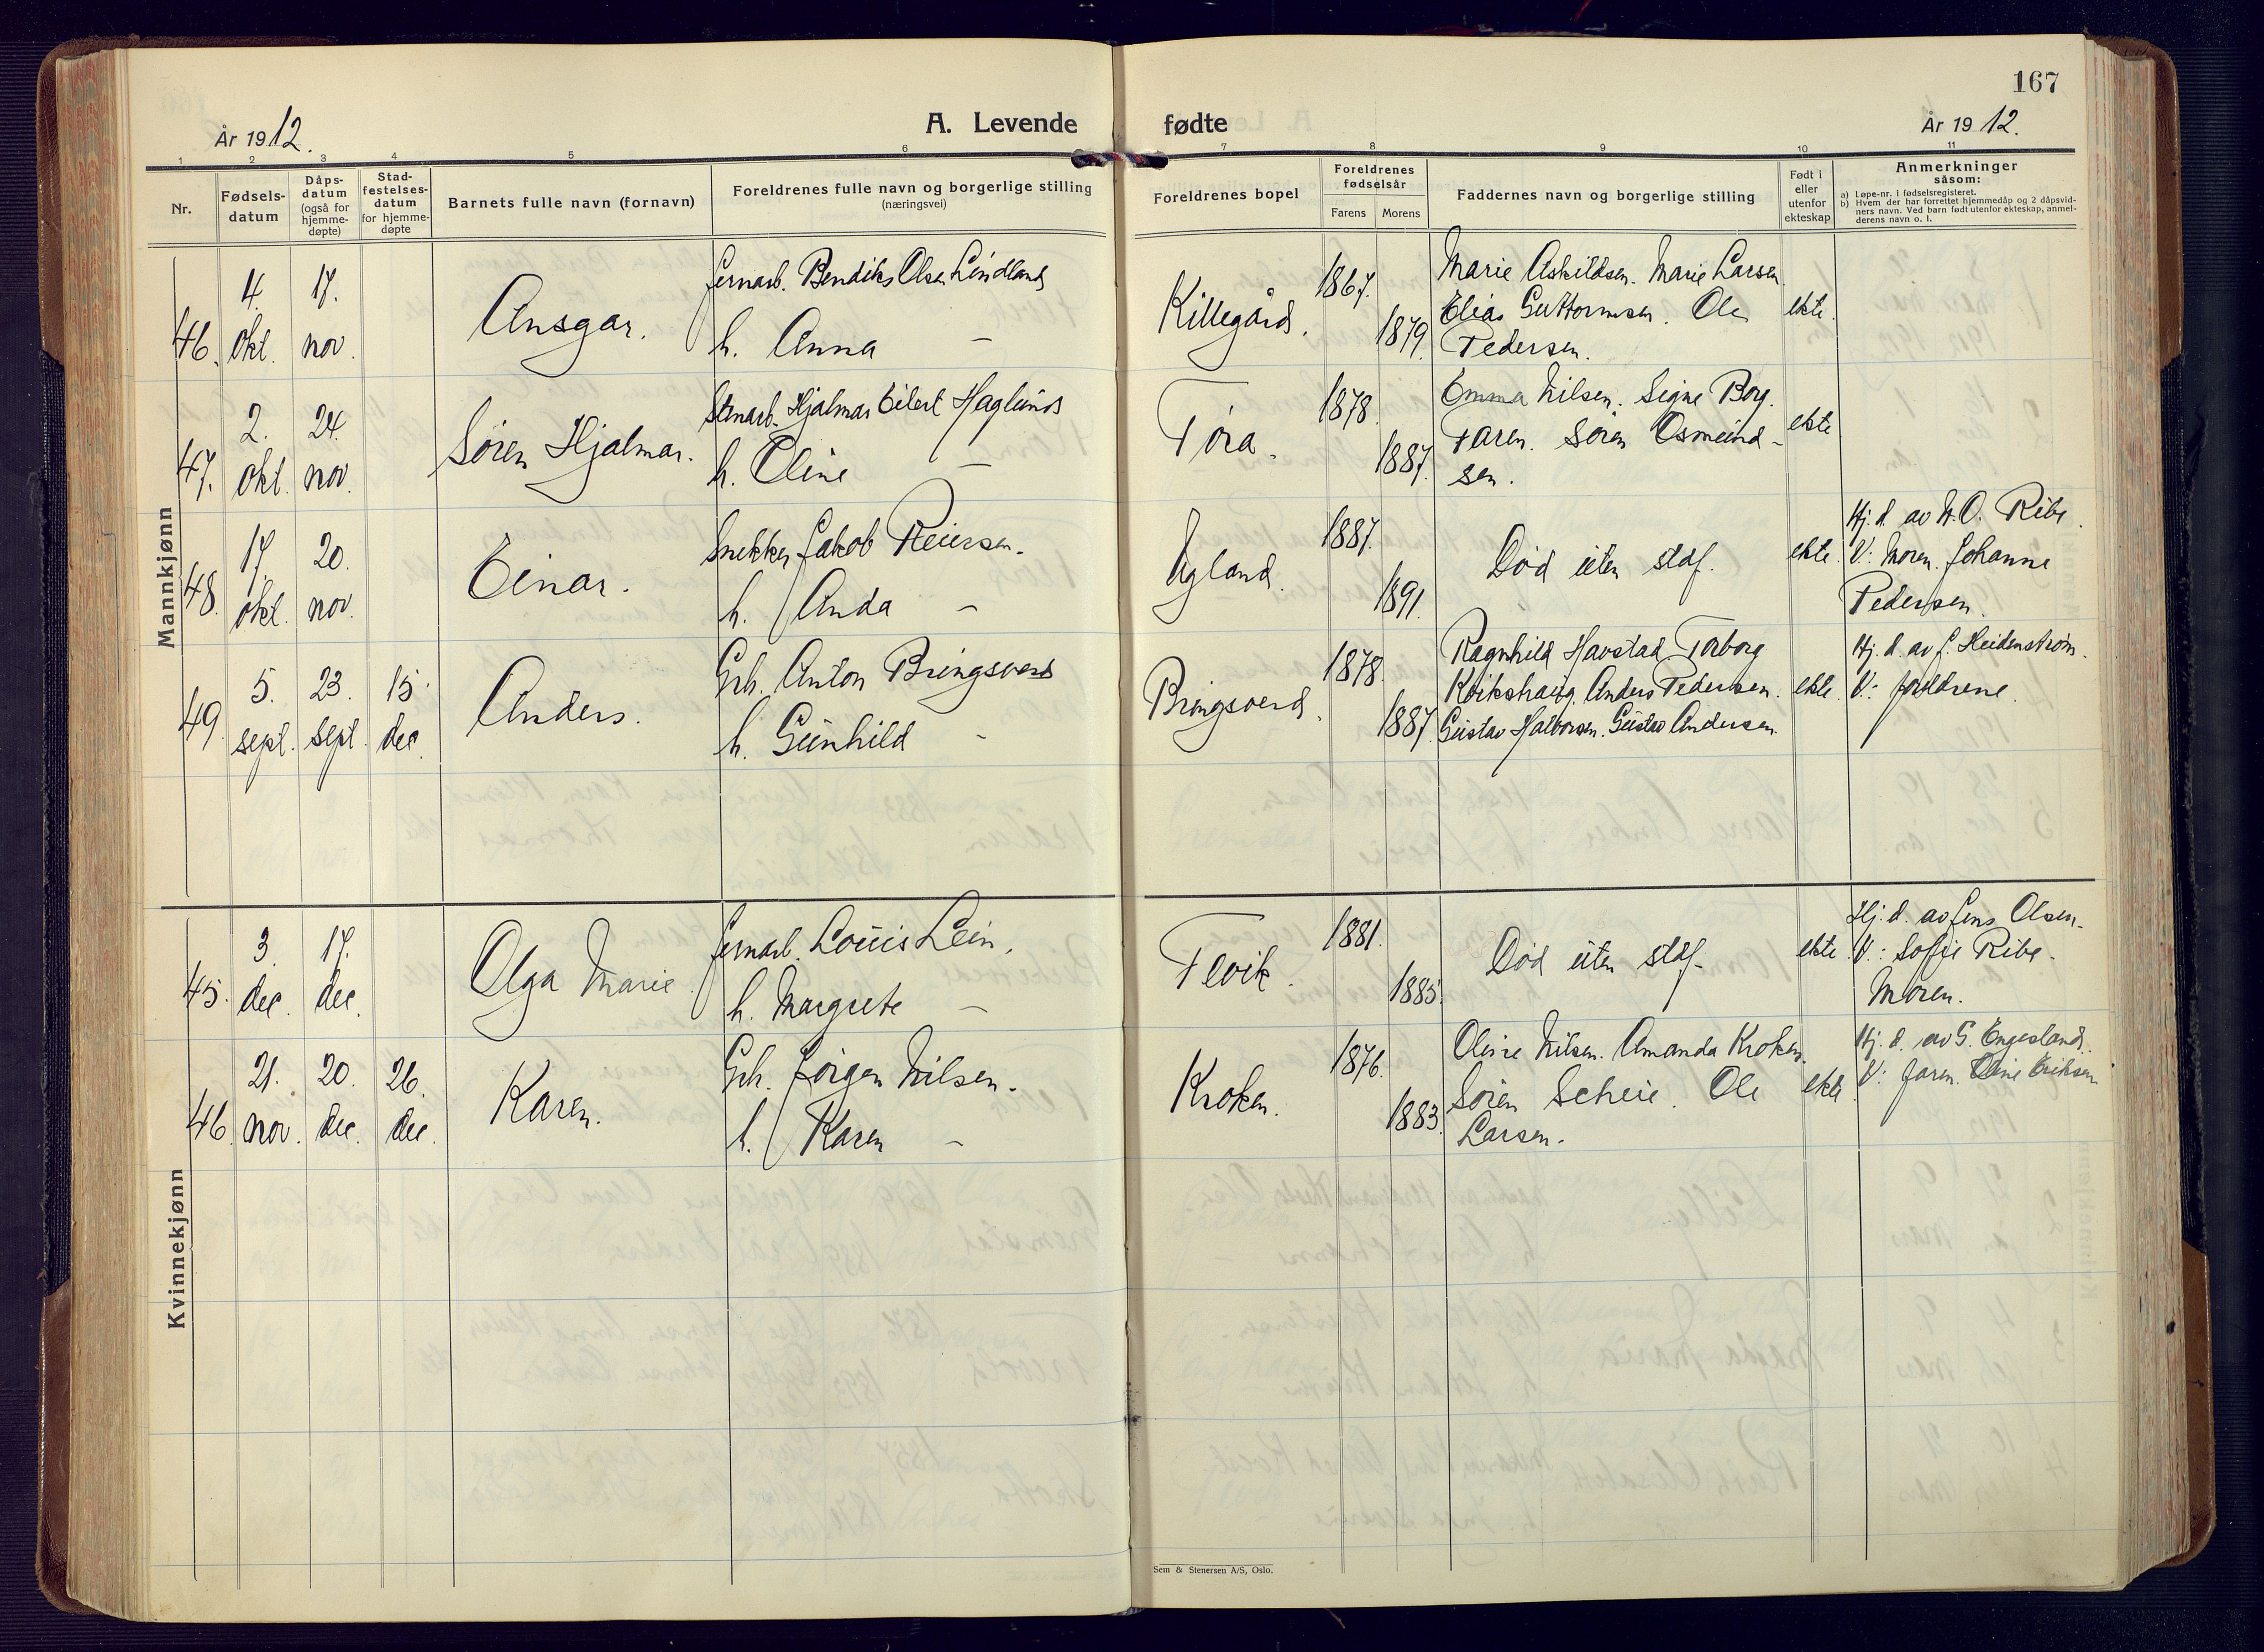 167
År 1912.
A. Levende
fødte
År 1912.
1 2 3 4 5 6 7 8 9 10 11
Nr.
Fødsels-
datum
Dåps-
datum
(også for
hjemme-
døpte)
Stad-
festelses-
datum
for hjemme-
døpte
Barnets fulle navn (fornavn)
Foreldrenes fulle navn og borgerlige stilling
(næringsvei)
Foreldrenes bopel
Foreldrenes
fødselsår
Farens
Morens
Faddernes navn og borgerlige stilling
Født i
eller
utenfor
ekteskap
Anmerkninger
såsom:
a) Løpe-nr. i fødselsregisteret.
b) Hvem der har forrettet hjemmedåp og 2 dåpsvid-
ners navn. Ved barn født utenfor ekteskap, anmel-
derens navn o. l.
Mannkjønn
46.
4.
okt.
17.
nov.
Ansgar.
Jernarb. Bendiks Olsen Lindland
h. Anna -
Killegård.
1867.
1879.
Marie Askildsen. Marie Larsen.
Elias Guttormsen. Ole
Pedersen.
ekte.
47.
2.
okt.
24.
nov.
Søren Hjalmar.
Stenarb. Hjalmar Eilert Haglund
h. Oline -
Tøra.
1878.
1887.
Emma Nilsen. Signe Borg.
Faren. Søren Osmund-
sen.
ekte
48.
17
okt.
20.
nov.
Einar.
Snekker Jakob Reiersen.
h. Anda -
Ugland.
1887.
1891.
Død uten stdf.
ekte.
Hj. d. av N. O. Ribe.
V: Moren. Johanne
Pedersen.
49.
5.
sept.
23.
sept.
15.
dec.
Anders.
Grb. Anton Bringsverd
h. Gunhild -
Bringsverd.
1878.
1887.
Ragnhild Havstad Torborg
Kvikshaug. Anders Pedersen.
Gustav Halvorsen. Gustav Andersen.
ekte.
Hj. d. av J. Heidenstrøm.
V: foreldrene.
Kvinnekjønn
45.
3.
dec.
17.
dec.
Olga Marie.
Jernarb. Louis Lein.
h. Margrete -
Fevik.
1881.
1885.
Død uten stdf.
ekte.
Hj. d. av Jens Olsen.
V: Sofie Ribe.
Moren.
46.
21.
nov.
20.
dec.
26.
dec.
Karen.
Grb. Jørgen Nilsen.
h. Karen -
Kroken.
1876.
1883.
Oline Nilsen. Amanda Kroken.
Søren Scheie. Ole
Larsen.
ekte.
Hj. d. av G. Engesland.
V: faren. Oline Eriksen
Sem & Stenersen A/S, Oslo.